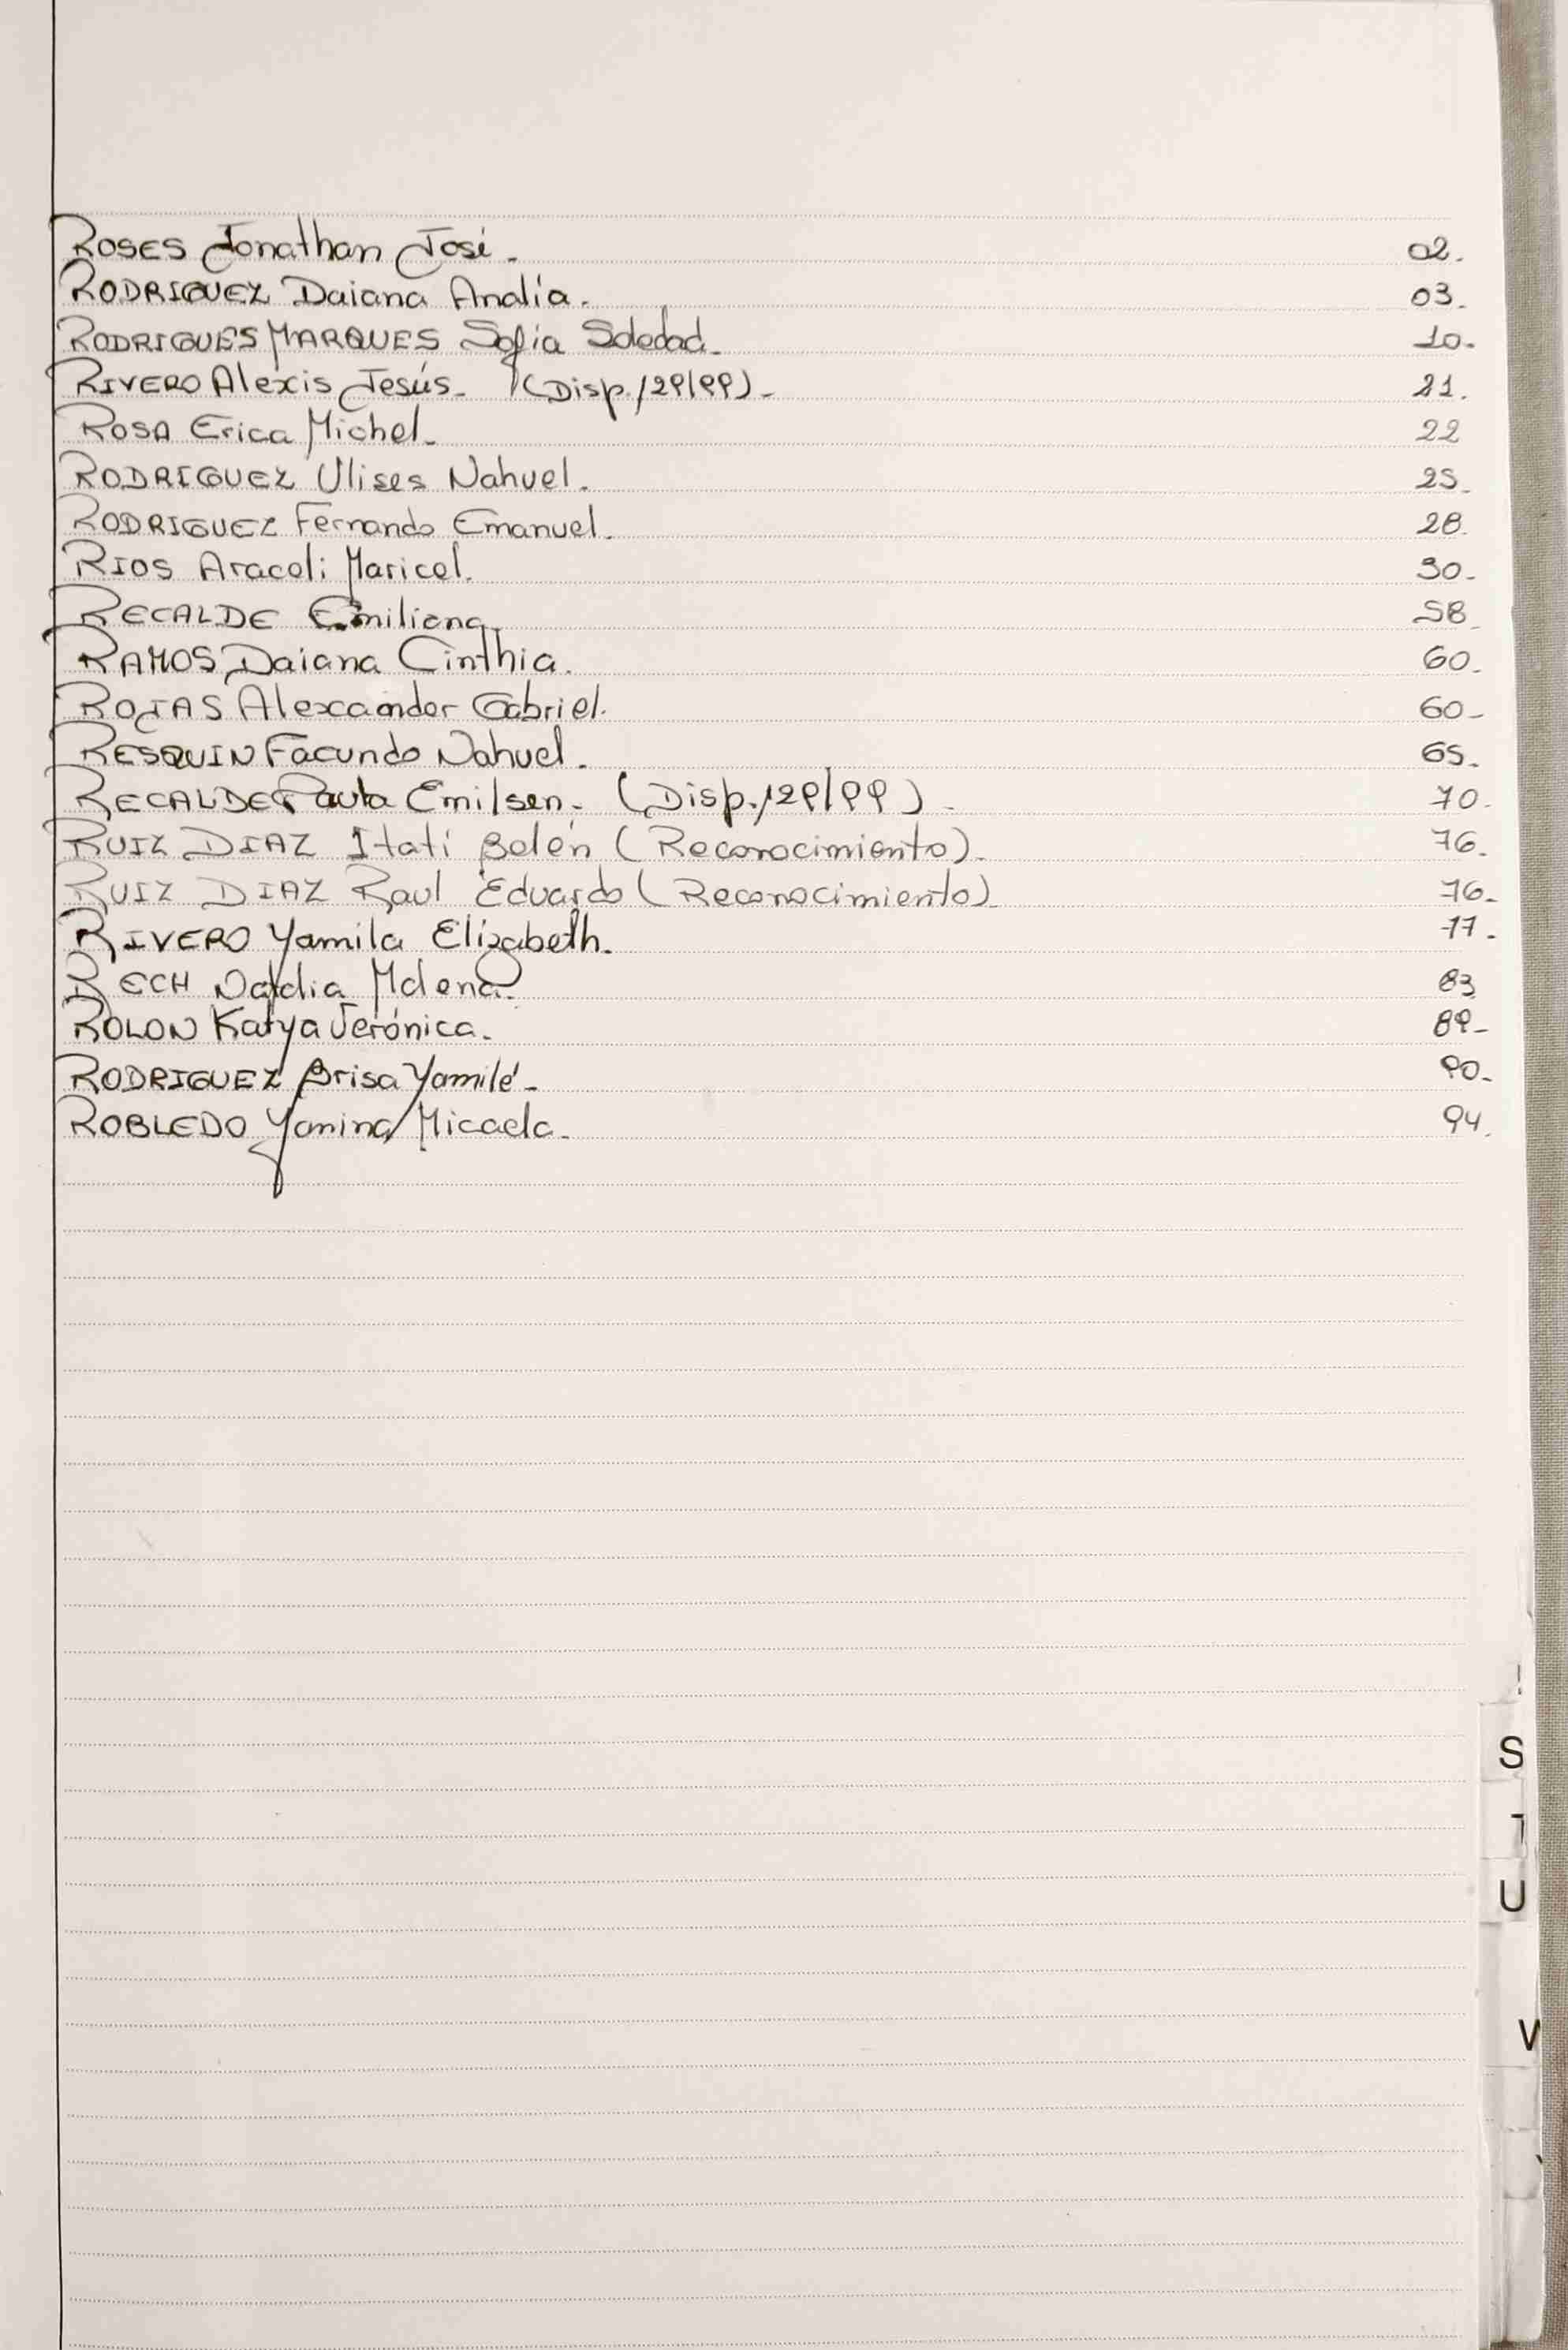 ROSES Jonathan José. 02.
RODRIGUEZ Daiana Analía. 03.
RODRIGUES MARQUES Sofia Soledad. 10.
RIVERO Alexis Jesús. (Disp./29/99). 21.
ROSA Erica Michel. 22
RODRIGUEZ Ulises Nahuel. 25.
RODRIGUEZ Fernando Emanuel. 28.
RIOS Araceli Maricel. 30.
RECALDE Emiliana. 58.
RAMOS Daiana Cinthia. 60.
ROJAS Alexander Gabriel. 60.
RESQUIN Facundo Nahuel. 65.
RECALDE Paula Emilsen. (Disp./29/99). 70.
RUIZ DIAZ Itatí Belén (Reconocimiento). 76.
RUIZ DIAZ Raul Eduardo (Reconocimiento). 76.
RIVERO Yamila Elizabeth. 77.
RECH 83
ROLON Katya Verónica. 89.
RODRIGUEZ Brisa Yamilé. 90.
ROBLEDO Yanina Micaela. 94.
S
T
U